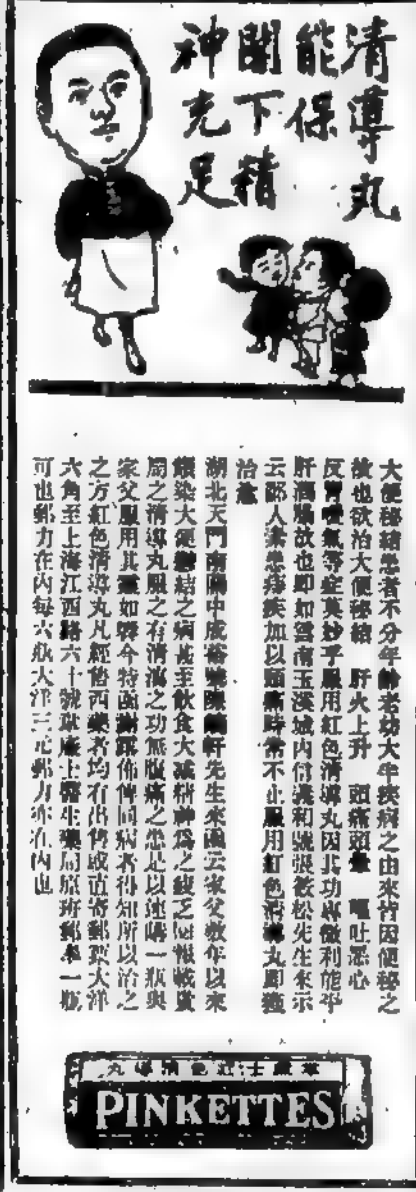 清導丸
能保
閣下精
神充足
大便秘結患者不分年齡老幼大半疾病之由來皆因便秘之
故也欲治大便秘結 肝火上升 頭痛頭暈 嘔吐惡心
反胃噯氣等症莫妙乎服用紅色清導丸因其功專微利能平
肝潤腸故也即如雲南玉溪城內信義和號張徵松先生來示
云鄙人素患痔疾加以頭痛時常不止服用紅色清導丸即獲
治愈
湖北天門南關中成裕號陳 軒先生來函云家父數年以來
纏染大便秘結之病甚至飲食大減精神為之疲乏 報載廣
局之清導丸服之有清瀉之功無腹痛之患是以速購一瓶與
家父服用其靈如響今特函謝 佈俾同病者得知所以治之
之方紅色清導丸凡經售西藥者均有出售或直寄郵票大洋
六角至上海江西路六十號韋廉士醫生藥局原班郵奉一瓶
可也郵力在內每六瓶大洋三元郵力亦在內也
韋廉士紅色清導丸
PINKETTES